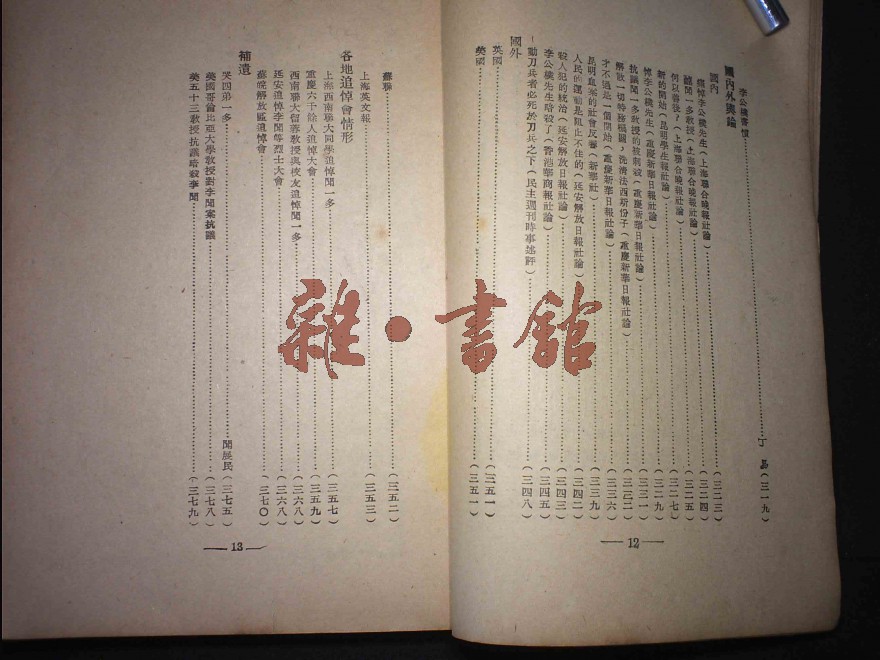 李公樸書懷……丁易(三一九)
國內外輿論
國內
痛悼李公樸先生(上海聯合晚報社論)……(三二三)
聞一多教授(上海聯合晚報社論)……(三二四)
何以善後?(上海聯合晚報社論)……(三二五)
新的開始(昆明學生報社論)……(三二七)
悼李公樸先生(重慶新華日報社論)……(三二九)
抗議聞一多教授的被刺殺(重慶新華日報社論)……(三三一)
解放一切特務機關,洗清法西斯份子(重慶新華日報社論)……(三三二)
才不過是一個開始(重慶新華日報社論)……(三三六)
昆明血案的社會反響(新華社)……(三三九)
人民的運動是阻止不住的(延安解放日報社論)……(三四二)
殺人犯的統治(延安解放日報社論)……(三四三)
李公樸先生暗殺了(香港華商報社論)……(三四五)
動刀兵者必死於刀兵之下(民主週刊時事述評)……(三四八)
國外
英國……(三五一)
美國……(三五一)
—12—
蘇聯……(三五二)
上海英文報……(三五三)
各地追悼會情形
上海西南聯大同學追悼聞一多……(三五七)
重慶六千餘人追悼大會……(三五九)
西南聯大留蓉教授與校友追悼聞一多……(三六八)
延安追悼李聞等烈士大會……(三六八)
蘇皖解放區追悼會……(三七〇)
補遺
哭四弟一多……聞展民(三七五)
美國哥倫比亞大學教授對李聞案抗議……(三七八)
美五十三教授抗議暗殺李聞……(三七九)
—13—
雜·書館